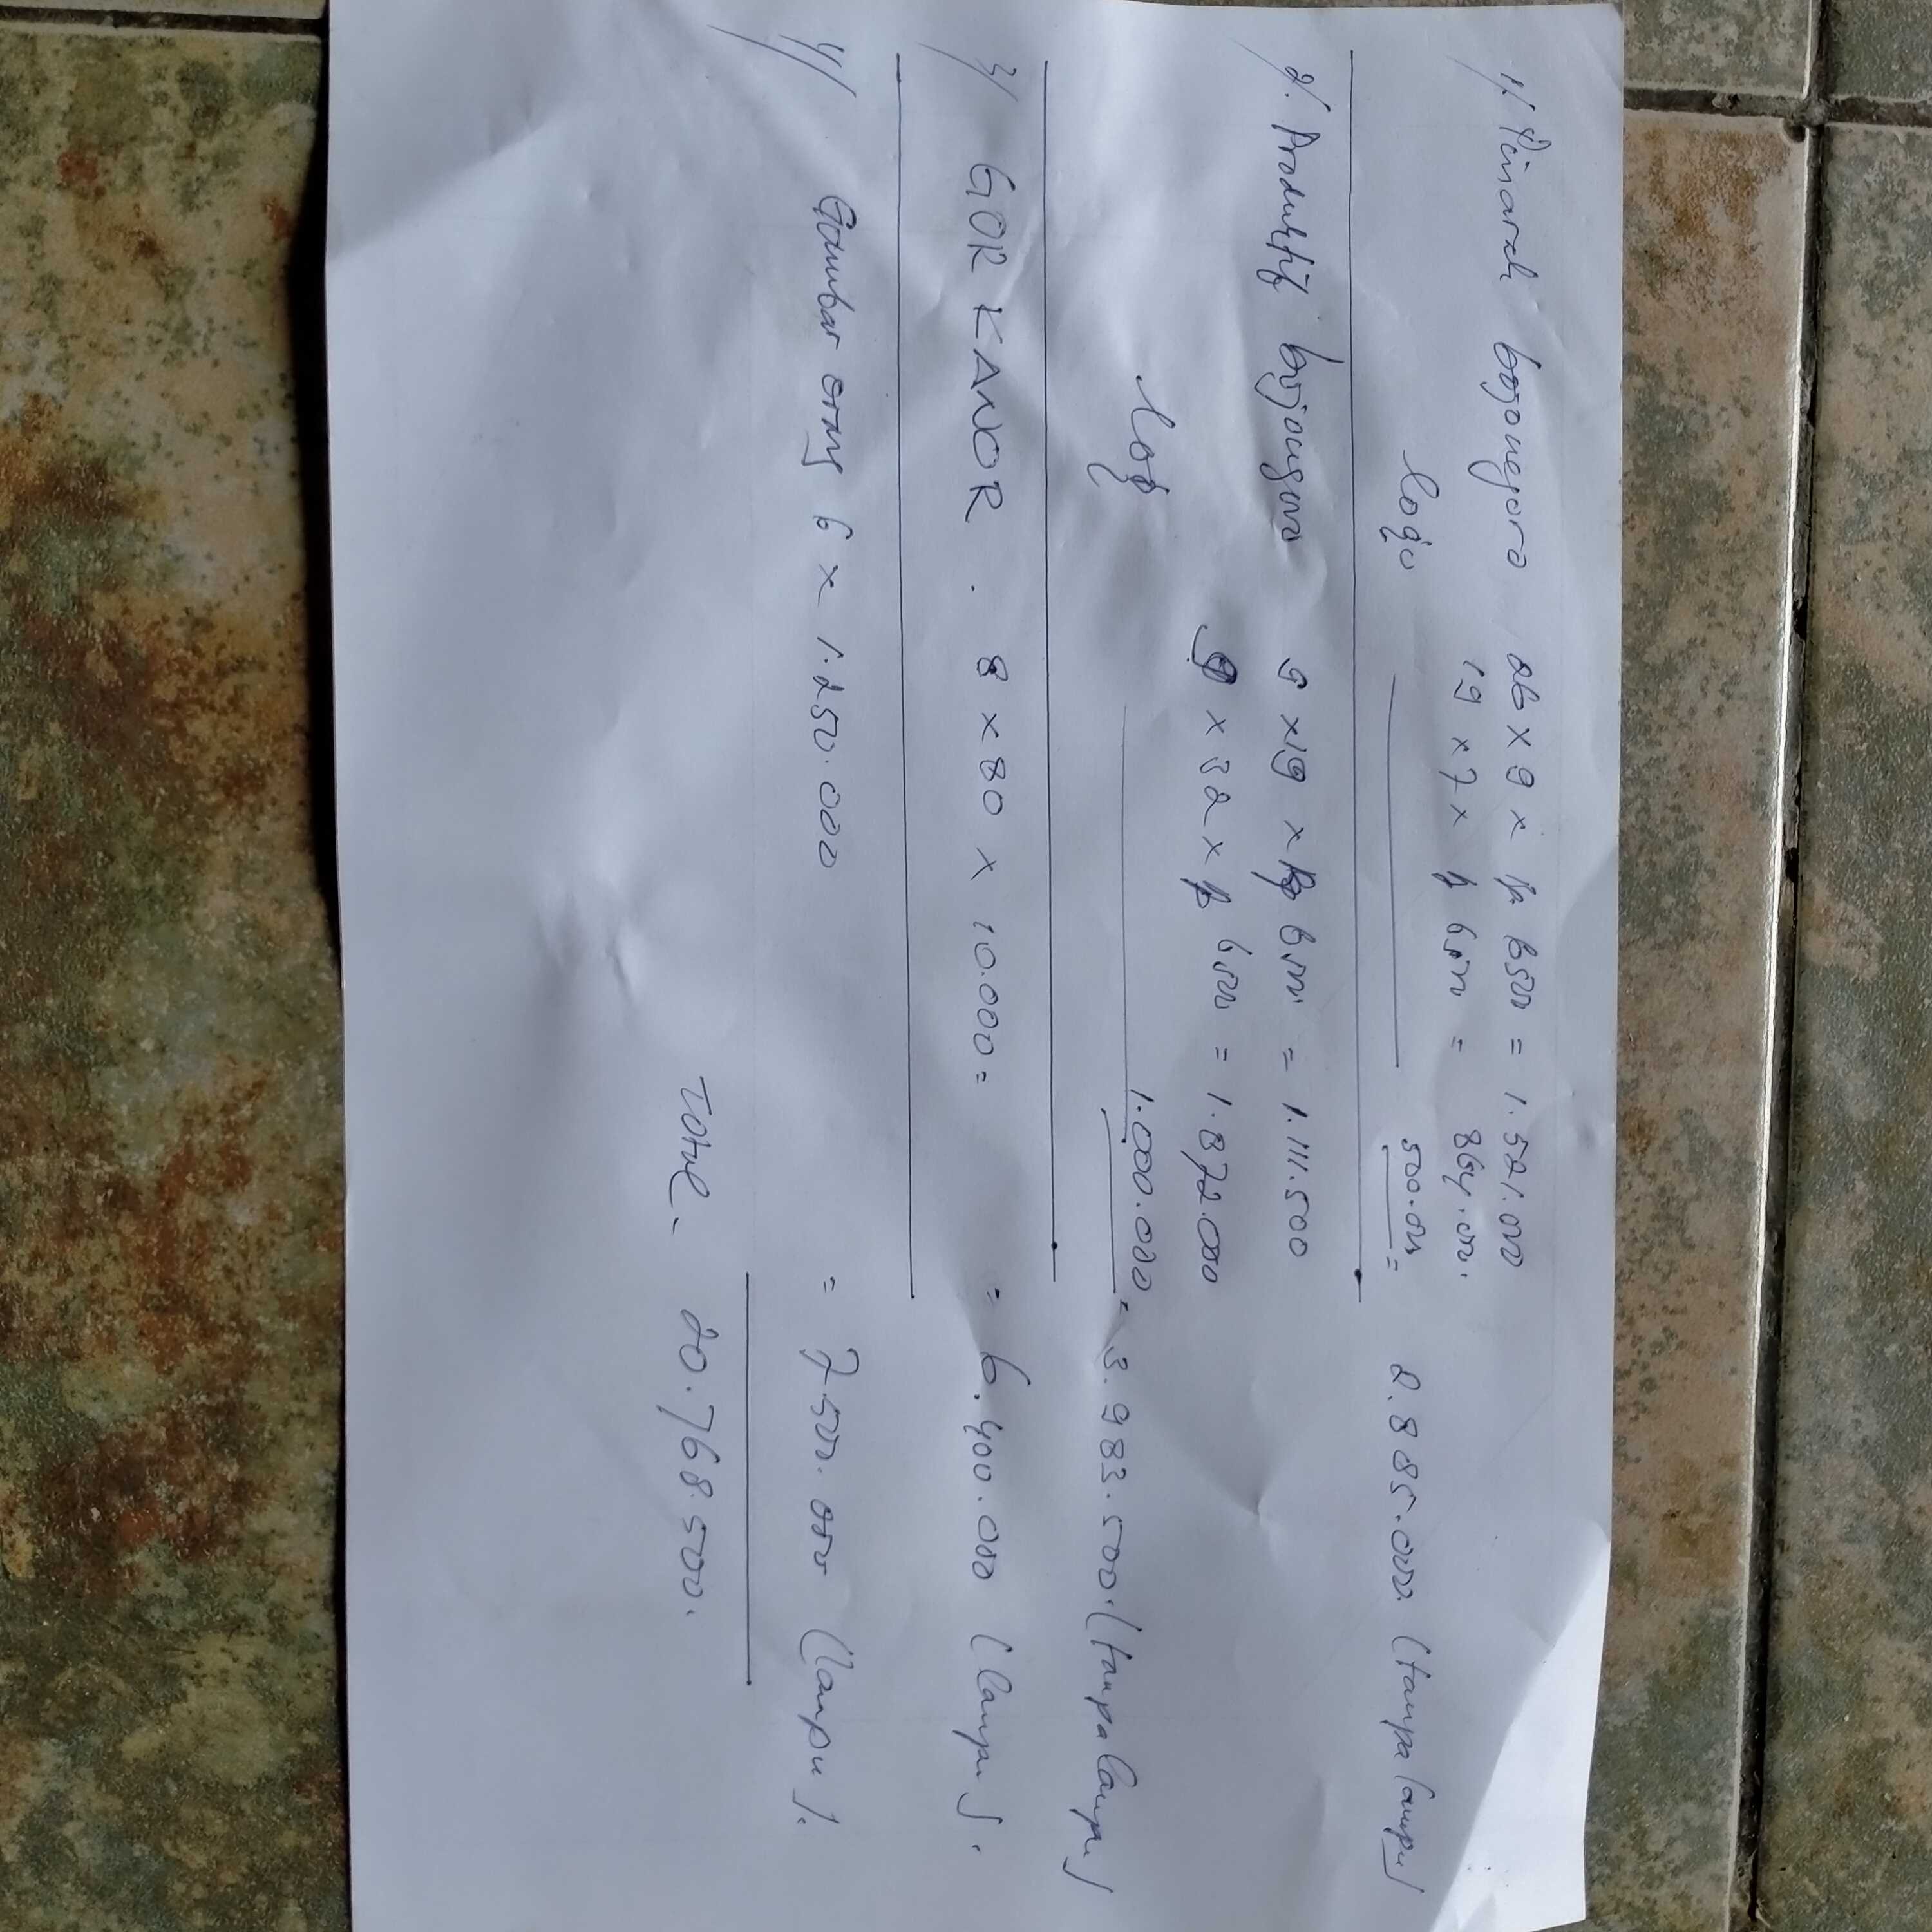 1/. Pinarak bojonegoro 26 x 9 x Rp 6500 = 1.521.000
19 x 7 x Rp 6500 = 864.000.
logo 500.000 = 2.885.000 (tanpa lampu)
2/. Produktif bojonegoro 9 x 19 x Rp 6500 = 1.111.500
9 x 32 x Rp 6500 = 1.872.000
logo 1.000.000 = 3.983.500.(tanpa lampu)
3/ GOR KANOR . 8 x 80 x 10.000 = = 6.400.000 (lampu).
4// Gambar orang 6 x 1.250.000 = 7.500.000 (lampu).
Total - 20.768.500.